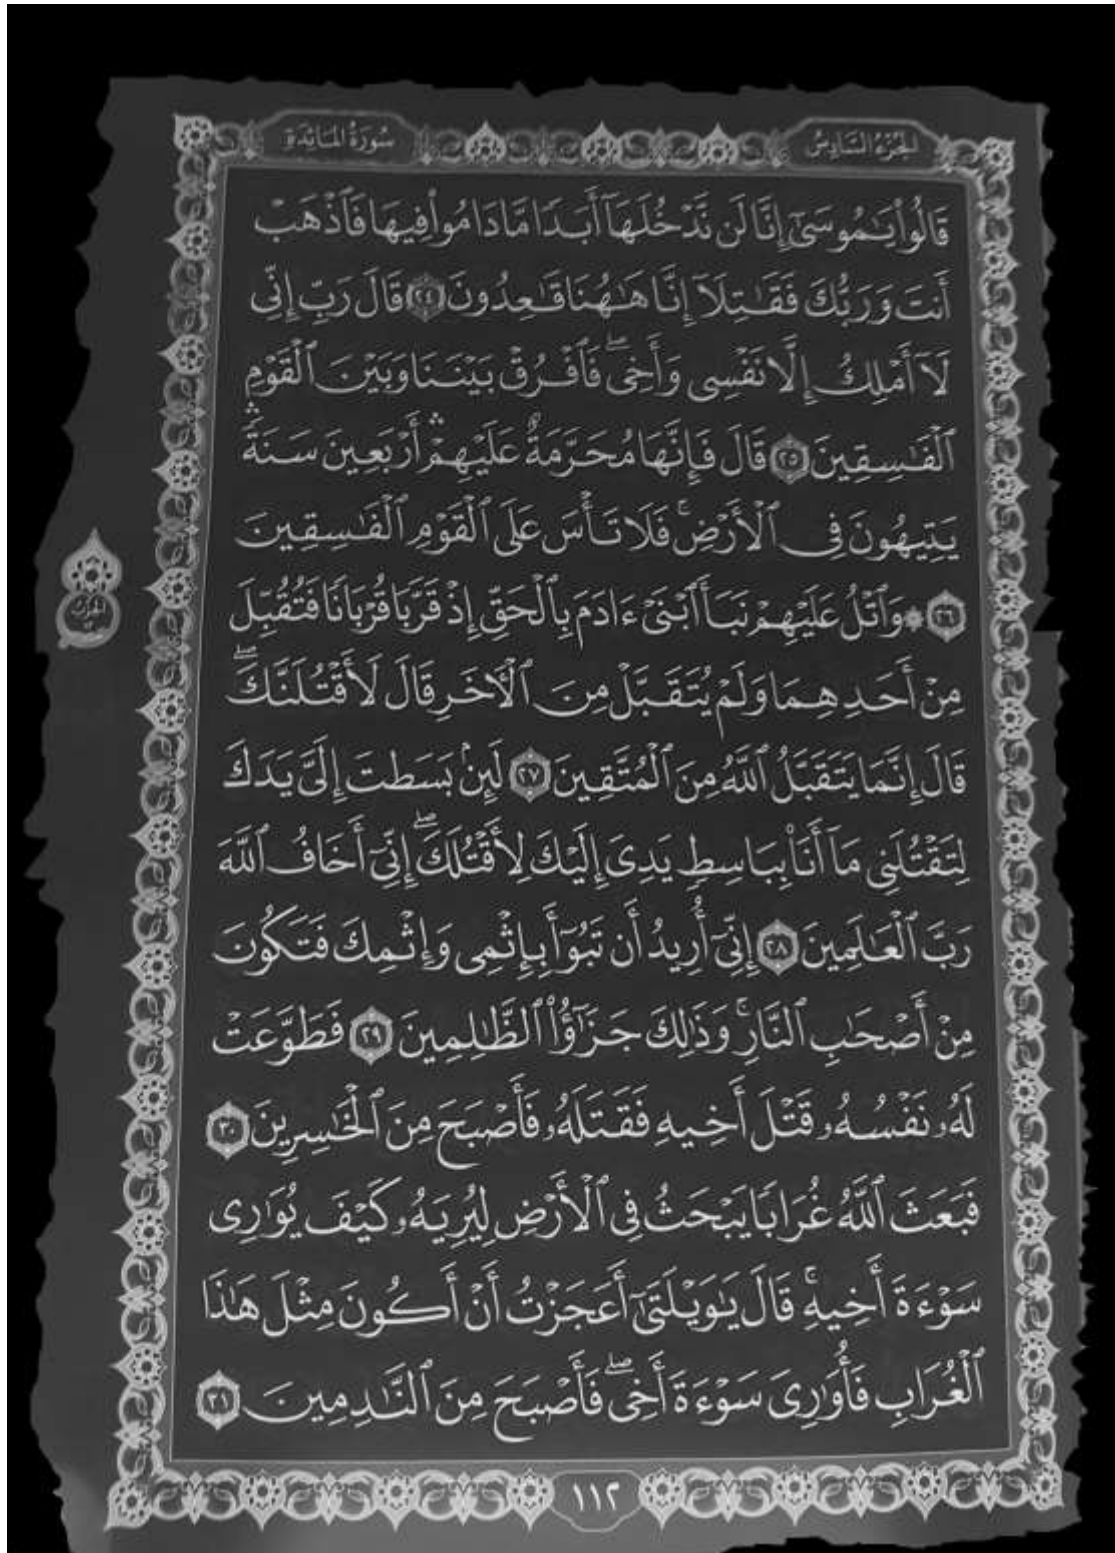 الجزء السادس
سورة المائدة
قَالُواْ يَٰمُوسَىٰٓ إِنَّا لَن نَّدْخُلَهَآ أَبَدٗا مَّا دَامُواْ فِيهَا فَٱذْهَبْ
أَنتَ وَرَبُّكَ فَقَٰتِلَآ إِنَّا هَٰهُنَا قَٰعِدُونَ ٢٤ قَالَ رَبِّ إِنِّي
لَآ أَمْلِكُ إِلَّا نَفْسِي وَأَخِيۖ فَٱفْرُقْ بَيْنَنَا وَبَيْنَ ٱلْقَوْمِ
ٱلْفَٰسِقِينَ ٢٥ قَالَ فَإِنَّهَا مُحَرَّمَةٌ عَلَيْهِمْۛ أَرْبَعِينَ سَنَةٗۛ
يَتِيهُونَ فِي ٱلْأَرْضِۚ فَلَا تَأْسَ عَلَى ٱلْقَوْمِ ٱلْفَٰسِقِينَ
٢٦ ۞ وَٱتْلُ عَلَيْهِمْ نَبَأَ ٱبْنَيْ ءَادَمَ بِٱلْحَقِّ إِذْ قَرَّبَا قُرْبَانٗا فَتُقُبِّلَ
مِنْ أَحَدِهِمَا وَلَمْ يُتَقَبَّلْ مِنَ ٱلْأٓخَرِ قَالَ لَأَقْتُلَنَّكَۖ
قَالَ إِنَّمَا يَتَقَبَّلُ ٱللَّهُ مِنَ ٱلْمُتَّقِينَ ٢٧ لَئِنۢ بَسَطتَ إِلَيَّ يَدَكَ
لِتَقْتُلَنِي مَآ أَنَا۠ بِبَاسِطٖ يَدِيَ إِلَيْكَ لِأَقْتُلَكَۖ إِنِّيٓ أَخَافُ ٱللَّهَ
رَبَّ ٱلْعَٰلَمِينَ ٢٨ إِنِّيٓ أُرِيدُ أَن تَبُوٓأَ بِإِثْمِي وَإِثْمِكَ فَتَكُونَ
مِنْ أَصْحَٰبِ ٱلنَّارِۚ وَذَٰلِكَ جَزَٰٓؤُاْ ٱلظَّٰلِمِينَ ٢٩ فَطَوَّعَتْ
لَهُۥ نَفْسُهُۥ قَتْلَ أَخِيهِ فَقَتَلَهُۥ فَأَصْبَحَ مِنَ ٱلْخَٰسِرِينَ ٣٠
فَبَعَثَ ٱللَّهُ غُرَابٗا يَبْحَثُ فِي ٱلْأَرْضِ لِيُرِيَهُۥ كَيْفَ يُوَٰرِي
سَوْءَةَ أَخِيهِۚ قَالَ يَٰوَيْلَتَىٰٓ أَعَجَزْتُ أَنْ أَكُونَ مِثْلَ هَٰذَا
ٱلْغُرَابِ فَأُوَٰرِيَ سَوْءَةَ أَخِيۖ فَأَصْبَحَ مِنَ ٱلنَّٰدِمِينَ ٣١
١١٢